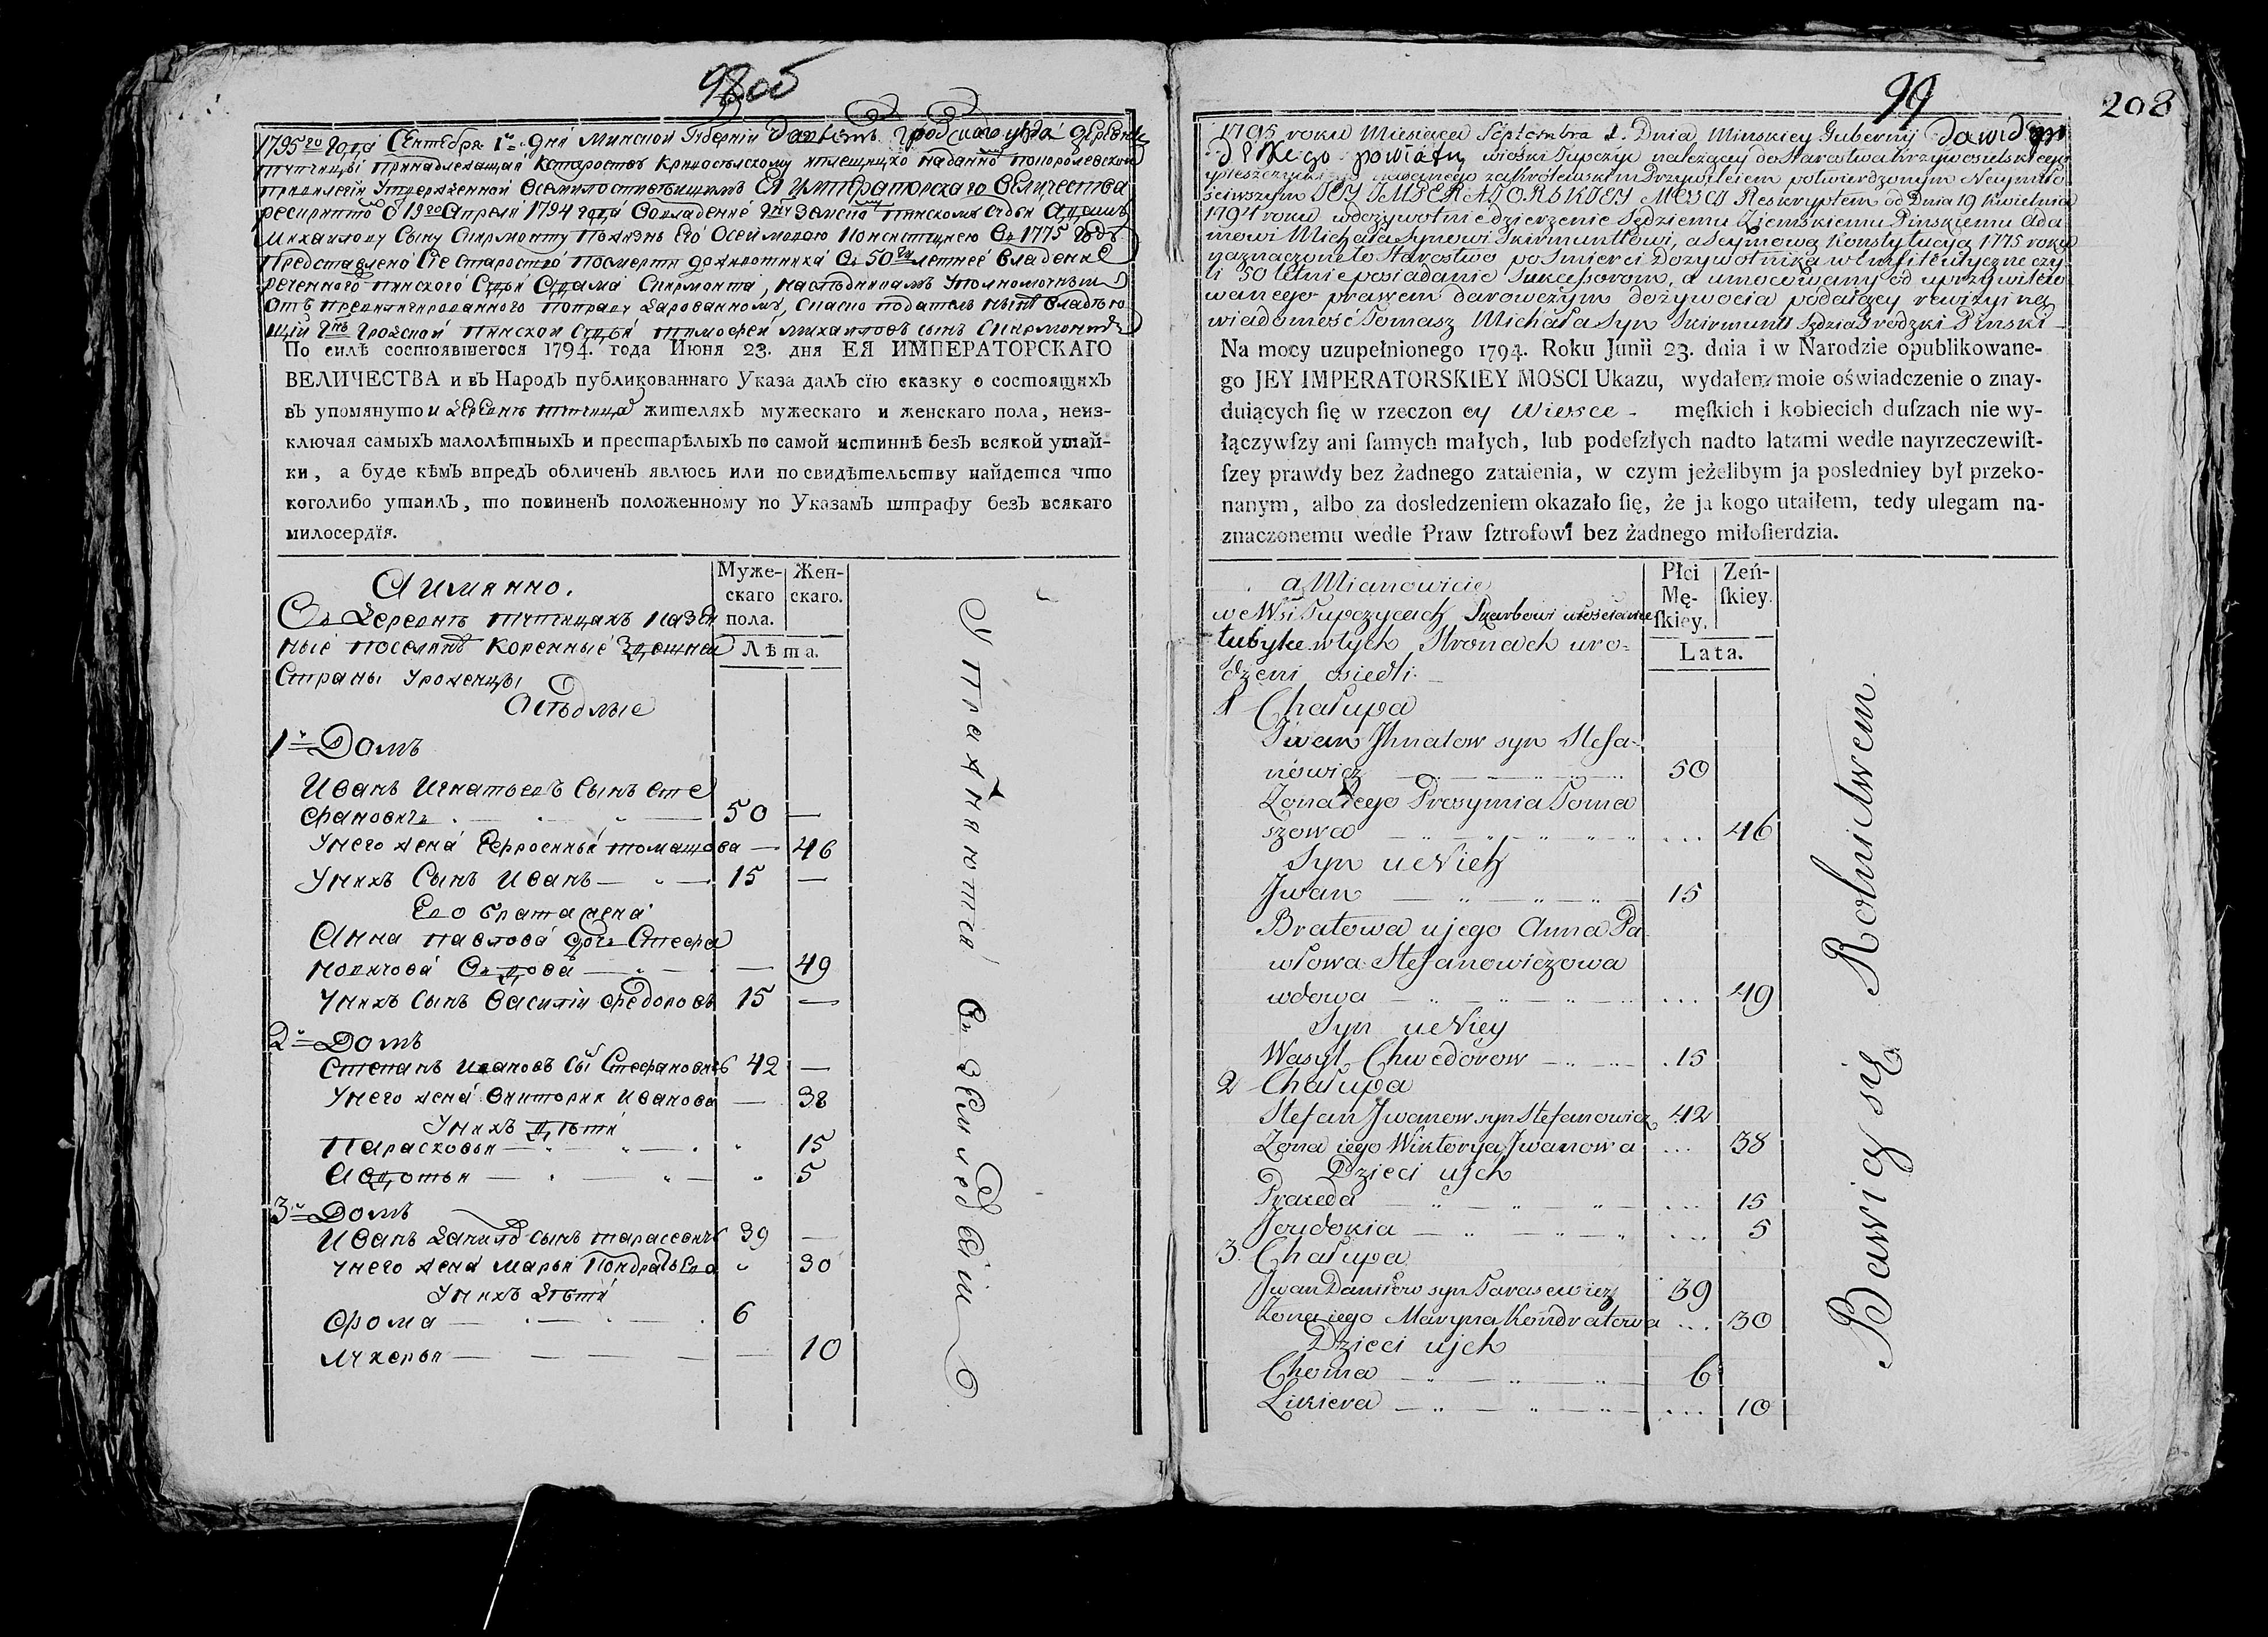 98об
1795го года Сентебра 1го дня Минской Губернии Давыд градскаго уезда деревни
принадлежащей Кстароства
Утвержденной Всемилостивейшимъ ЕЯ Императорскаго Величества
19го Апреля 1794 года Вовладение Земскому Пинскому Судьи Адаму
Михайлову Сыну Скирмонту Пожизнь Его Осеймовою Конституциею Въ 1775 Годе
Представлено Сие Староство Посмерти Въ 50 летнее Владение
реченного Пинского Судьи Адама Скирмонта, наследникамъ
Отъ
Гродской Пинской Судья Тимофей Михайловъ сынъ Скирмонтъ
По силѣ состоявшегося 1794. года Июня 23. дня ЕЯ ИМПЕРАТОРСКАГО
ВЕЛИЧЕСТВА и въ Народъ публикованнаго Указа далъ сїю сказку о состоящихъ
въ упомянутой деревнѣ жителяхъ мужескаго и женскаго пола, неиз-
ключая самыхъ малолѣтныхъ и престарѣлыхъ по самой истиннѣ безъ всякой утай-
ки, а буде кѣмъ впредъ обличенъ явлюсь или по свидѣтельству найдется что
коголибо утаилъ, то повиненъ положенному по Указамъ штрафу безъ всякаго
милосердїя.
Аимянно.
Муже-
скаго
пола.
Жен-
скаго.
Лѣта.
Въ Деревнѣ Казен
ные поселянѣ коренные здешней
Страны уроженцы
Оседлые
1й Домъ
Иванъ Игнатьевъ Сынъ Сте
фановичъ 50 —
Унего жена Евросинья томашова — 46
Унихъ Сынъ Иванъ 15 —
Его брата жена
Анна павлова дочь Стефа
новичова Вдова — 49
Унихъ Сынъ Василiи Федоровъ 15 —
2й Домъ
Степанъ Ивановъ Сы Стефановичъ 42 —
Унего жена Виктория Иванова — 38
Унихъ дѣти
Парасковья 15
Авдотья 5
3й Домъ
Иванъ Данилѡ Сынъ тарасевичъ 39 —
Унего жена Марья Кондратьева 30
Унихъ дѣти
Фома 6
Лукерья 10
Упражняются Въ Земледелiи
99
208
1795 roku Miesiąca Septembra 1. Dnia Minskiey Gubernij Dawidgro
dzkiego powiatu wioski Tupczyc należącey do Starostwa Krzywosielskiego
nadanego za Królewskim Przywileiem potwierdzonym Naymiło
sciwszym JEY IMPERATORSKIEY Mości Reskryptem od Dnia 19 Kwietnia
1794 roku w dożywotnie dzierżenie Sędziemu Ziemskiemu Pinskiemu Ada
mowi Michała Synowi Skirmunttowi, a Seymową Konstytucyą 1775 roku
naznaczone to Starostwo po Smierci Dożywotnika w emfiteutyczne czy
li 50 letnie posiadanie Sukcessorom, a umocowany od uprzywilelo
wanego prawem darowczym dożywocia podaiący rewizyi na
wiadomość Tomasz Michała Syn Skirmuntt Sędzia Grodzki Pinski
Na mocy uzupełnionego 1794. Roku Junii 23. dnia i w Narodzie opublikowane-
go JEY IMPERATORSKIEY MOSCI Ukazu, wydałem moie oświadczenie o znay-
duiących ſię w rzeczoney Wiosce męſkich i kobiecich duſzach nie wy-
łączywſzy ani ſamych małych, lub podeſzłych nadto latami wedle nayrzeczewiſt-
ſzey prawdy bez żadnego zataienia, w czym jeżelibym ja posledniey był przeko-
nanym, albo za dosledzeniem okazało ſię, że ja kogo utaiłem, tedy ulegam na-
znaczonemu wedle Praw ſztrofowi bez żadnego miłoſierdzia.
a Mianowicie
Płci
Mę-
ſkiey.
Zeń-
ſkiey.
Lata.
we Wsi Tupczycach Skarbowi włościanie
tubylce w tych Stronach uro-
dzeni osiedli.
1 Chałupa
Jwan Jhnatow syn Stefa-
nowicz 50
Zona iego Prosymia Toma
szowa 46
Syn u Nich
Jwan 15
Bratowa u jego Anna Pa
włowa Stefanowiczowa
wdowa 49
Syn u Niey
Wasyl Chwedorow 15
2 Chałupa
Stefan Jwanow syn Stefanowicz 42
Zona iego Wiktorya Jwanowa 38
Dzieci u Jch
Praxeda 15
Jewdokia 5
3. Chałupa
Jwan Daniłow syn Tarasewicz 39
Zona iego Maryna Kondratowa 30
Dzieci u jch
Choma 6
Lukiera 10
Bawią się Rolnictwem.